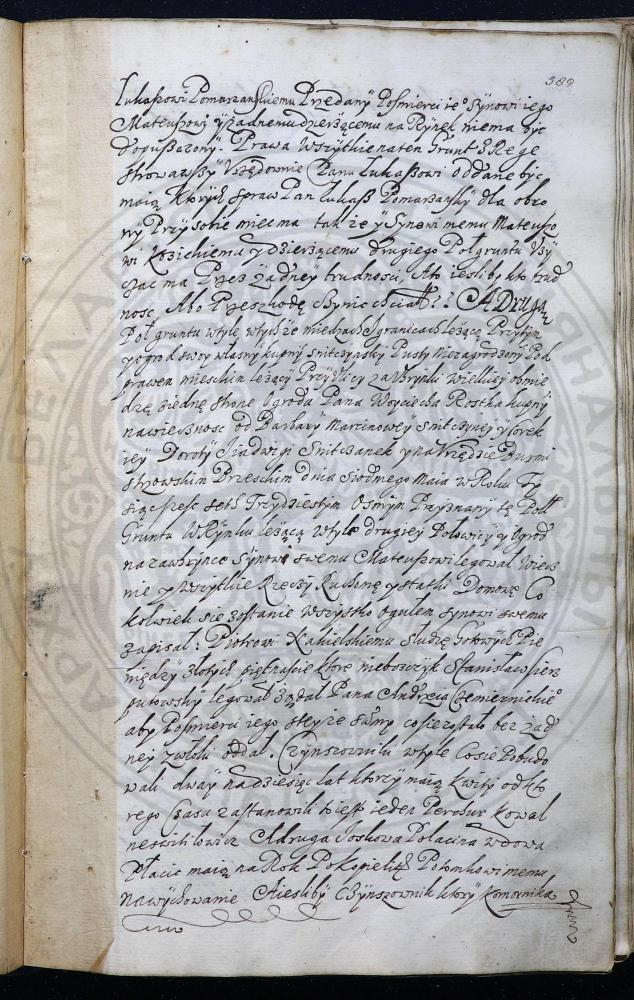 389
Łukaszowi Pomarzanskiemu Przedany Posmierci ie° Synowi iego
Mateuszowi y żadnemu dzierżącemu na Rynek niema być
dopuszczony. Prawa wszytkie na ten Grunt z Rege
strowawszy Urzędownie Panu Łukaszowi oddane być
maią Których spraw Pan Łukasz Pomarzanski dla obro
ny Przy sobie miec ma także y Synowi memu Mateuszo
wi Kozichiemu y dzierżącemu drugiego Poł gruntu Uży
czac ma Przez żadney trudnosci, Ato iesliby kto trud
nosc Abo Przeszkodę czynic chciał A Drugą
Poł gruntu wtyle wtychże miedzach y granicach leżącą Przytym
y ogrod swoy własny kupny Snitczynsky Pusty Niezagrodzony Pod
prawem mieskim leżący Przy Ulicy za Rynku wielkiey obmie
dzę ziednę stronę Ogroda Pana Woyciecha Rostka kupny
na wiecznosc od Barbary Marcinowey Snitczyney y Corek
iey Doroty y Jadwigi Snitczanek y na Urzędzie Burmi
strzowskim Brzeskim dnia siodmego Maia w Roku Ty
siąc szesc seth Trzydziestym Osmym Przyznany te Poł
Gruntu w Rynku leżącą wtyle drugiey Połowicy y Ogrod
na zawżynce Synowi swemu Mateuszowi legował wiecz
nie y wszytkie Rzeczy Ruchome y statki Domowe Co
kolwiek się zostanie wszystko ogułem synowi swemu
zapisał: Piotrowi Kakielskiemu słudze Gotowych Pie
niędzy złotych piętnascie które nieboszczyk Stanisław
legował żądał Pana Andrzeia Czemiernickie°
aby Posmierci iego steyże summy cosie zostało bez żad
ney zwłoki oddał. Czynszownikı wtyle Cosie Pobudo
wali dway na dziesięc lat ktorzy maią kwity od kto
rego Czasu zastanowili to iest ieden Perchur Kowal
A druga Joskowa Połacina wdowa
Płacic maią na Rok Po Kopie lit Potomkowi memu
na wychowanie Aiesliby Czynszownik ktory Komornika